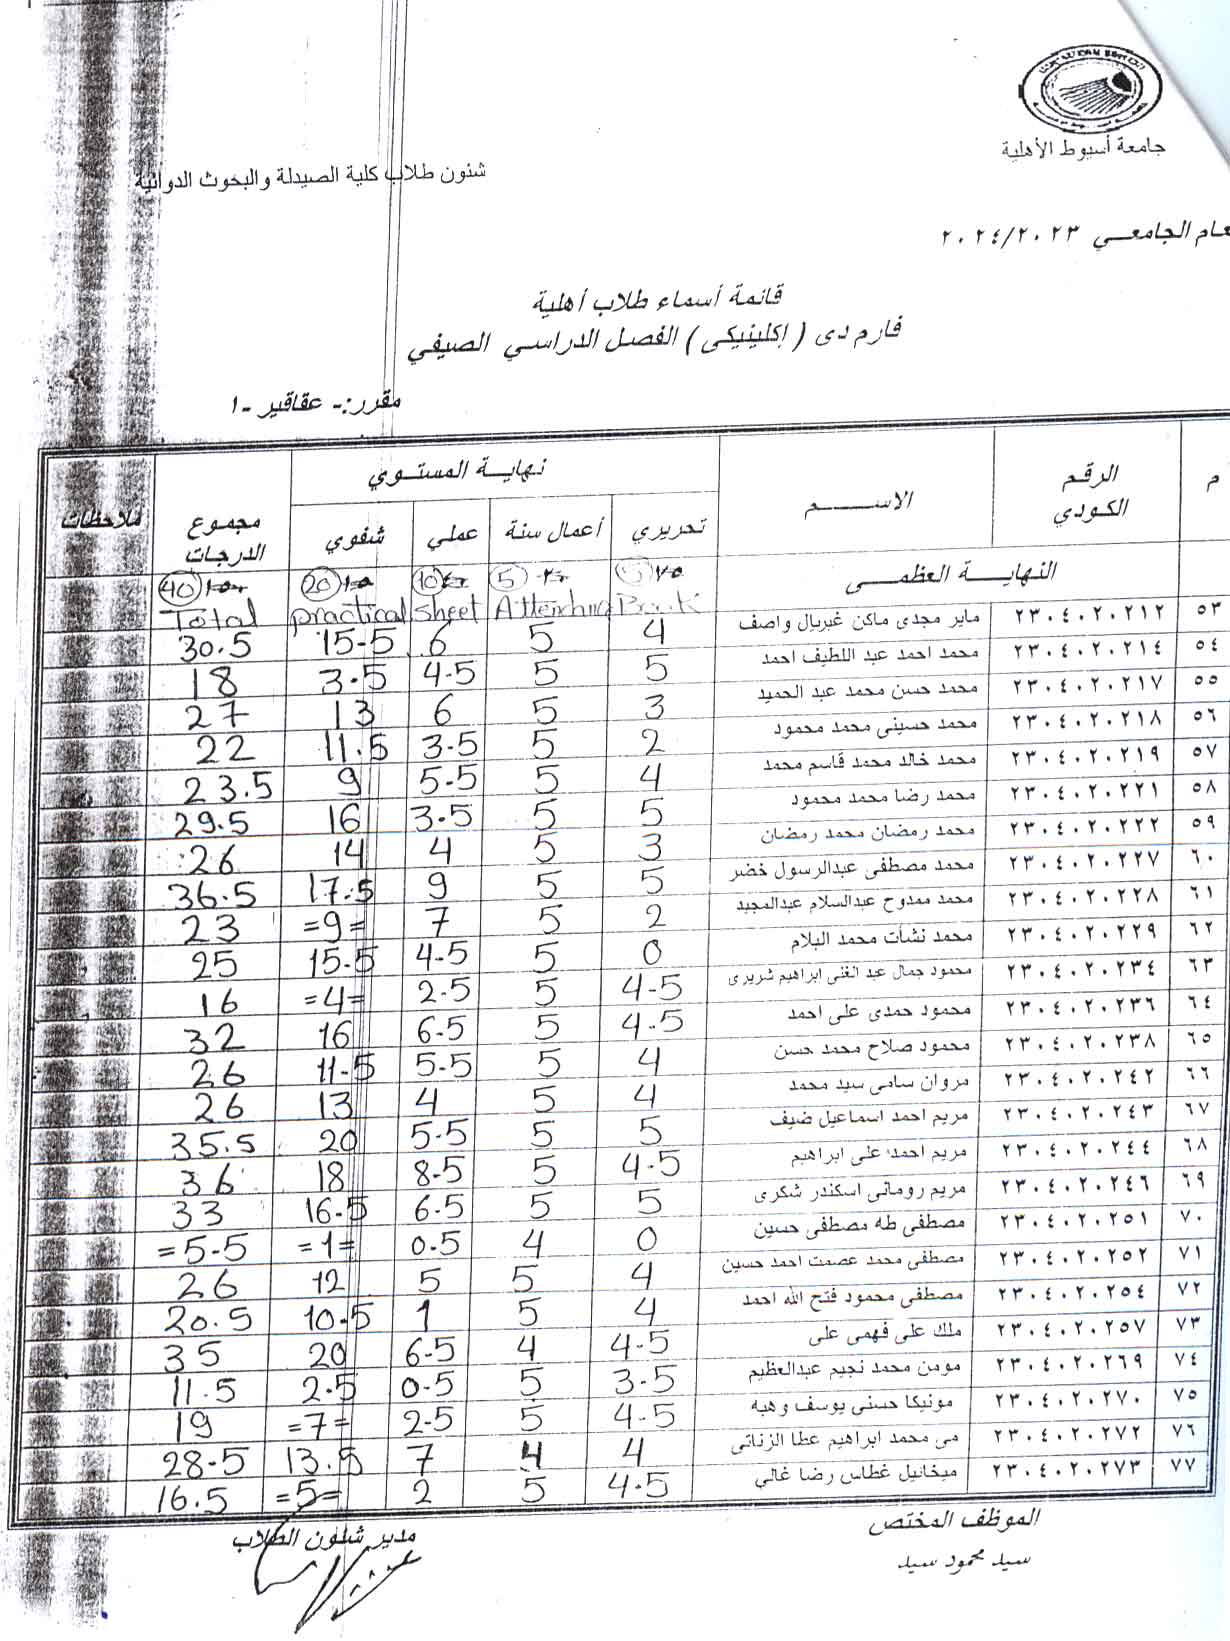 جامعة أسيوط الأهلية
شئون طلاب كلية الصيدلة والبحوث الدوائية
عام الجامعي ٢٠٢٤/٢٠٢٣
قائمة أسماء طلاب أهلية
فارم دى (إكلينيكى) الفصل الدراسي الصيفي
مقرر:- عقاقير -١
م الرقم الكودي الاســـم نهاية المستوي مجموع الدرجات ملاحظات
تحريري أعمال سنة عملي شفوي
النهاية العظمى 5 10 20 40
Book Attending sheet practical Total
٥٣ ٢٣٠٤٠٢٠٢١٢ مايز مجدى ماكن غبريال واصف 4 5 6 15.5 30.5
٥٤ ٢٣٠٤٠٢٠٢١٤ محمد احمد عبد اللطيف احمد 5 5 4.5 3.5 18
٥٥ ٢٣٠٤٠٢٠٢١٧ محمد حسن محمد عبد الحميد 3 5 6 13 27
٥٦ ٢٣٠٤٠٢٠٢١٨ محمد حسينى محمد محمود 2 5 3.5 11.5 22
٥٧ ٢٣٠٤٠٢٠٢١٩ محمد خالد محمد قاسم محمد 4 5 5.5 9 23.5
٥٨ ٢٣٠٤٠٢٠٢٢١ محمد رضا محمد محمود 5 5 3.5 16 29.5
٥٩ ٢٣٠٤٠٢٠٢٢٢ محمد رمضان محمد رمضان 3 5 4 14 26
٦٠ ٢٣٠٤٠٢٠٢٢٧ محمد مصطفى عبدالرسول خضر 5 5 9 17.5 36.5
٦١ ٢٣٠٤٠٢٠٢٢٨ محمد ممدوح عبدالسلام عبدالمجيد 2 5 7 =9= 23
٦٢ ٢٣٠٤٠٢٠٢٢٩ محمد نشأت محمد البلام 0 5 4.5 15.5 25
٦٣ ٢٣٠٤٠٢٠٢٣٤ محمود جمال عبد الغنى ابراهيم شريرى 4.5 5 2.5 =4= 16
٦٤ ٢٣٠٤٠٢٠٢٣٦ محمود حمدى على احمد 4.5 5 6.5 16 32
٦٥ ٢٣٠٤٠٢٠٢٣٨ محمود صلاح محمد حسن 4 5 5.5 11.5 26
٦٦ ٢٣٠٤٠٢٠٢٤٢ مروان سامى سيد محمد 4 5 4 13 26
٦٧ ٢٣٠٤٠٢٠٢٤٣ مريم احمد اسماعيل ضيف 5 5 5.5 20 35.5
٦٨ ٢٣٠٤٠٢٠٢٤٤ مريم احمد على ابراهيم 4.5 5 8.5 18 36
٦٩ ٢٣٠٤٠٢٠٢٤٦ مريم رومانى اسكندر شكرى 5 5 6.5 16.5 33
٧٠ ٢٣٠٤٠٢٠٢٥١ مصطفى طه مصطفى حسين 0 4 0.5 =1= =5.5
٧١ ٢٣٠٤٠٢٠٢٥٢ مصطفى محمد عصمت احمد حسين 4 5 5 12 26
٧٢ ٢٣٠٤٠٢٠٢٥٤ مصطفى محمود فتح الله احمد 4 5 1 10.5 20.5
٧٣ ٢٣٠٤٠٢٠٢٥٧ ملك على فهمى على 4.5 4 6.5 20 35
٧٤ ٢٣٠٤٠٢٠٢٦٩ مومن محمد نجيم عبدالعظيم 3.5 5 0.5 2.5 11.5
٧٥ ٢٣٠٤٠٢٠٢٧٠ مونيكا حسنى يوسف وهبه 4.5 5 2.5 =7= 19
٧٦ ٢٣٠٤٠٢٠٢٧٢ مى محمد ابراهيم عطا الزناتى 4 4 7 13.5 28.5
٧٧ ٢٣٠٤٠٢٠٢٧٣ ميخائيل غطاس رضا غالي 4.5 5 2 =5= 16.5
الموظف المختص مدير شئون الطلاب
سيد محمود سيد